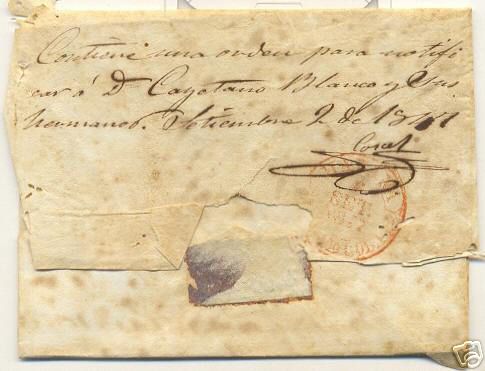 Contiene una orden para notifi
car á Dn Cayetano Blanco y sus
hermanos. Setiembre 2 de 1847
SET.